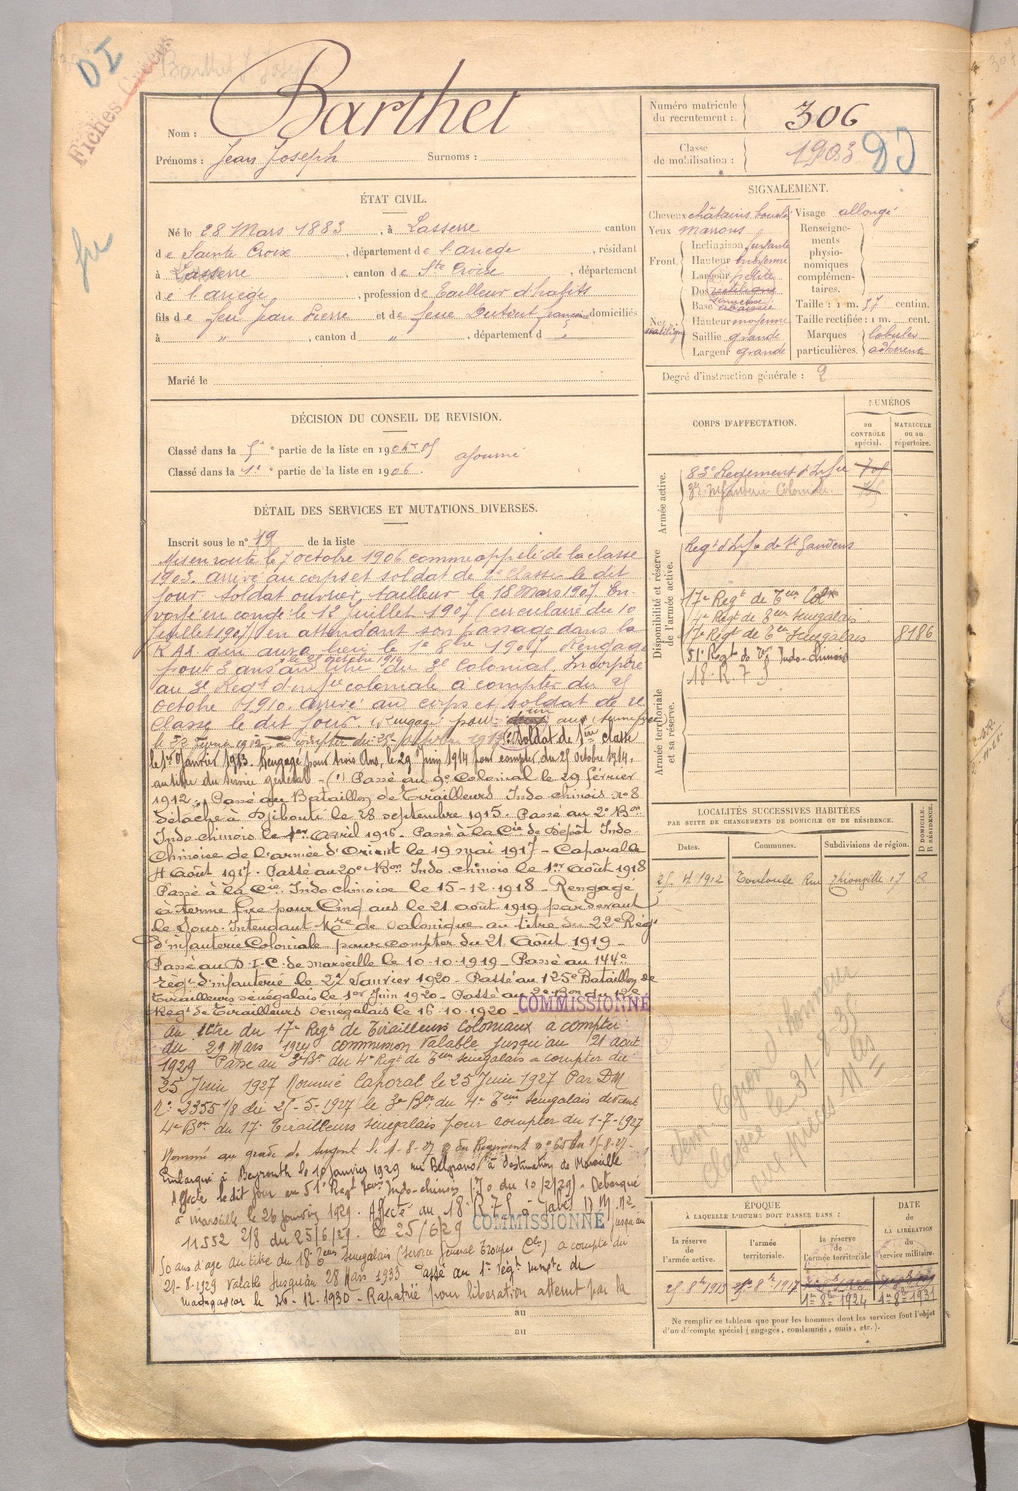 DI
Fiches Créées
Barthet J Joseph
Nom : Barthet
Prénoms : Jean Joseph Surnoms :
Numéro matricule du recrutement : 306
Classe de mobilisation : 1903 DI
ÉTAT CIVIL.
Né le 28 Mars 1883, à Lasserre canton
de Sainte Croix, département de l'ariège, résidant
à Lasserre, canton de Ste Croix, département
de l'ariège, profession de tailleur d'habits
fils de feu Jean Pierre et de feue Dutrut françoise domiciliés
à " , canton d " , département d "
Marié le
SIGNALEMENT.
Cheveux châtains bouclés Visage allongé
Yeux marrons
Front. Inclinaison fuyante
Hauteur moyenne
Largeur petite
Nez rectiligne
Dos rectiligne
Base
Hauteur moyenne
Saillie grande
Largeur grande
Renseignements physionomiques complémentaires.
Taille : 1 m. 57 centim.
Taille rectifiée : 1 m. cent.
Marques particulières. lobules adhérents
Degré d'instruction générale : 2
DÉCISION DU CONSEIL DE REVISION.
Classé dans la 5e partie de la liste en 1904 et 05 ajourné
Classé dans la 1e partie de la liste en 1906.
DÉTAIL DES SERVICES ET MUTATIONS DIVERSES.
Inscrit sous le n° 19 de la liste
Mis en route le 7 octobre 1906 comme appelé de la classe
1903. arrivé au corps et soldat de 2e classe le dit
jour. soldat ouvrier tailleur le 18 mars 1907. En-
voyé en congé le 12 Juillet 1907 (circulaire du 10
Juillet 1907) en attendant son passage dans la
R.A.A. qui aura lieu le 1er 8bre 1907. Rengagé
pour 3 ans le 25 octobre 1910 au titre du 3e Colonial. Incorporé
au 3e Regt d'infrie coloniale à compter du 25
octobre 1910. arrivé au corps et soldat de 2e
classe le dit jour. Rengagé pour un an
Soldat de 1ère classe
le 1er Janvier 1913. Rengagé pour trois Ans, le 29 Juin 1914 pour compter du 25 octobre 1914,
au titre du service général - (1) Passé au 9e Colonial le 29 février
1912. Passé au Bataillon de Tirailleurs Indo chinois n° 8
Détaché à Djibouti le 28 septembre 1915. Passé au 2e Bon
Indo chinois le 1er Avril 1916 - Passé à la Cie de Dépôt Indo
Chinoise de l'armée d'Orient le 19 mai 1917 - Caporal le
11 Août 1917. Passé au 20e Bon Indo chinois le 1er Août 1918
Passé à la Cie. Indo chinoise le 15-12-1918 - Rengagé
à terme fixe pour Cinq ans le 21 août 1919 par devant
le Sous. Intendant Mre de Salonique au titre du 22e Régt
d'infanterie Coloniale pour compter du 21 Août 1919 -
Passé au D.I.C. de Marseille le 10-10-1919 - Passé au 144e
Régt d'infanterie le 22 Janvier 1920 - Passé au 125e Bataillon de
Tirailleurs sénégalais le 1er Juin 1920 - Passé au 2e Bon du 17e
Régt de Tirailleurs Sénégalais le 16-10-1920 - COMMISSIONNÉ
au titre du 17e Regt de Tirailleurs Coloniaux à compter
du 29 Mars 1924 commission valable jusqu'au 21 août
1929 Passé au 3e Bon du 4e Regt de Teurs Sénégalais à compter du
25 Juin 1927 Nommé Caporal le 25 Juin 1927 Par DM
N° 2355 1/8 du 25-5-1927 le 3e Bon du 4e Teurs Senegalais devient
4e Bon du 17e Tirailleurs Senegalais pour compter du 1-7-1927
Nommé au grade de Sergent le 1-8-27
Embarqué à Beyrouth le 16 janvier 1929 sur à destination de Marseille
Affecté le dit jour au 51e Regt Indo-chinois (J.O du 10/2/29) - Débarqué
à Marseille le 26 janvier 1929. Affecté au 18 R.T.S à Gabès D M N°
11552 2/8 du 25/6/29. le 25/6/29 COMMISSIONNÉ jusqu'au
50 ans d'age au titre du 18e Teurs Senegalais (Service Général Troupes Cles) à compter du
21-8-1929 Valable Jusqu'au 28 Mars 1933. Passé au 1er régt mixte de
Madagascar le 26-12-1930 - Rapatrié pour libération atteint par la
au
au
CORPS D'AFFECTATION.
NUMÉROS
AU CONTRÔLE spécial.
MATRICULE ou au répertoire.
Armée active.
83e Régiment d'Infie
3e Infanterie Coloniale.
Disponibilité et réserve de l'armée active.
Regt d'Infie de St Gaudens
17e Regt de Teurs Colx
4e Regt de Teurs Senegalais
17e Regt de Teurs Senegalais 8186
51e Regt de Indo-chinois
18. R.T.S
Armée territoriale et sa réserve.
LOCALITÉS SUCCESSIVES HABITÉES
PAR SUITE DE CHANGEMENTS DE DOMICILE OU DE RÉSIDENCE.
Dates. Communes. Subdivisions de région. D DOMICILE. R RÉSIDENCE.
25 4 1912 Toulouse Rue Thionville 17 R
dem. légion d'honneur
classée le 31 8 35
aux pièces Mles
ÉPOQUE
À LAQUELLE L'HOMME DOIT PASSER DANS :
DATE de LA LIBÉRATION du service militaire.
la réserve de l'armée active.
l'armée territoriale.
la réserve de l'armée territoriale.
25 8bre 1913 25 8bre 1917
1er 8bre 1924 1er 8bre 1931
Ne remplir ce tableau que pour les hommes dont les services font l'objet
d'un décompte spécial (engagés, condamnés, omis, etc.).